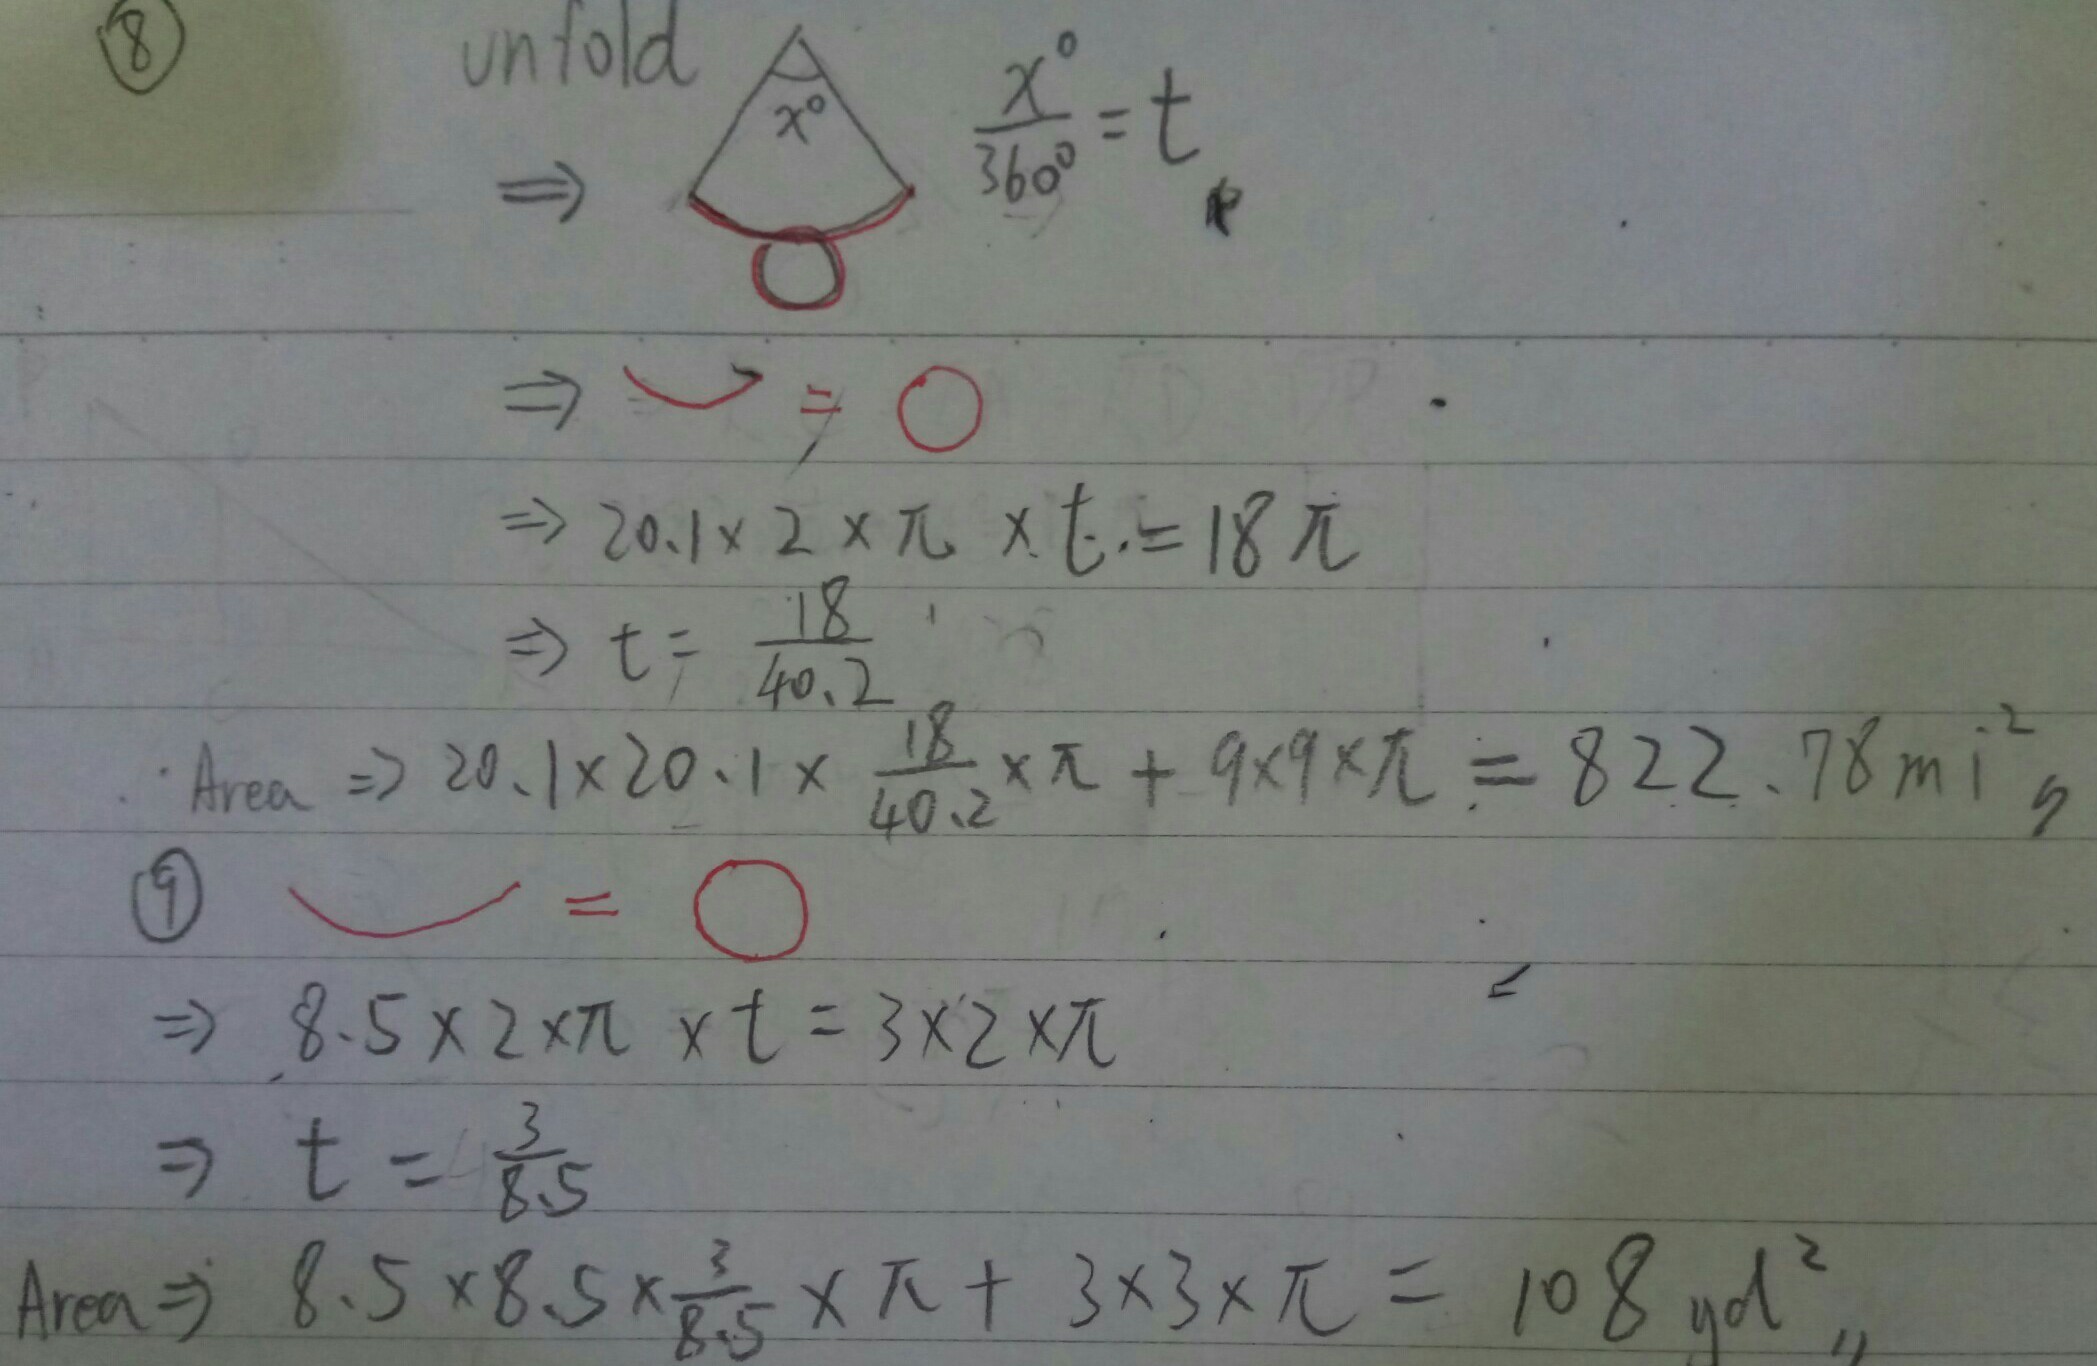 ⑧ unfold x° x°/360° = t
⇒
⇒ =
⇒ 20.1 × 2 × π × t = 18π
⇒ t = 18/40.2
Area ⇒ 20.1 × 20.1 × 18/40.2 × π + 9×9×π = 822.78 mi²
⑨ =
⇒ 8.5 × 2 × π × t = 3×2×π
⇒ t = 3/8.5
Area ⇒ 8.5 × 8.5 × 3/8.5 × π + 3×3×π = 108 yd²